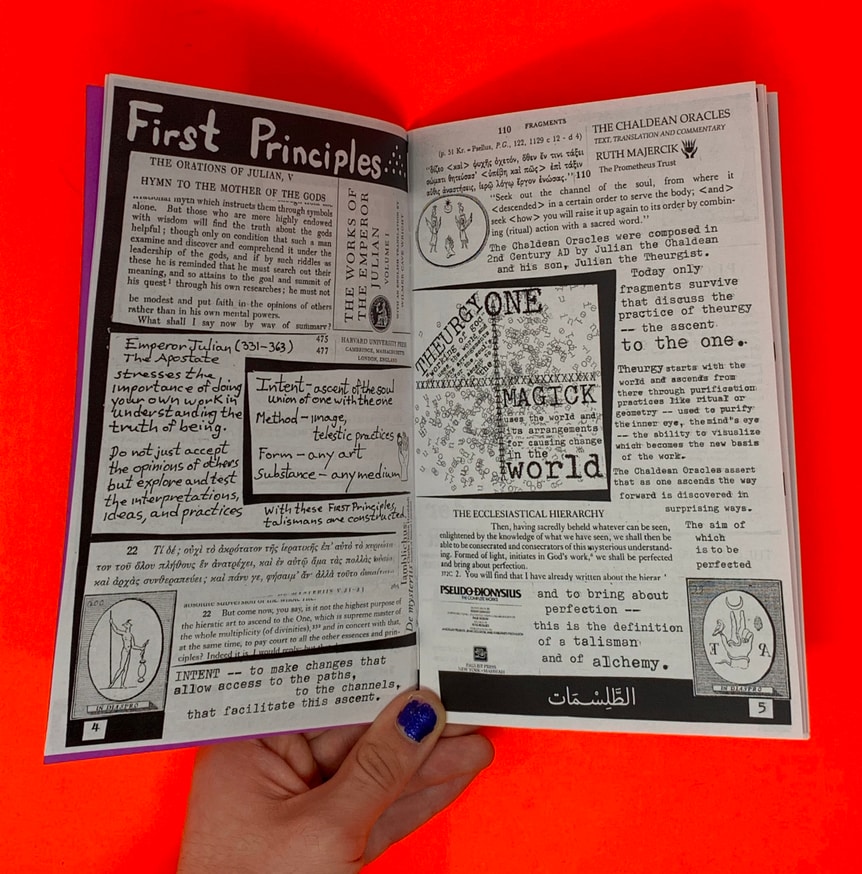 First Principles
THE ORATIONS OF JULIAN, V
HYMN TO THE MOTHER OF THE GODS
myth which instructs them through symbols
alone. But those who are more highly endowed
with wisdom will find the truth about the gods
helpful; though only on condition that such a man
examine and discover and comprehend it under the
leadership of the gods, and if by such riddles as
these he is reminded that he must search out their
meaning, and so attains to the goal and summit of
his quest through his own researches; he must not
be modest and put faith in the opinions of others
rather than in his own mental powers.
What shall I say now by way of summary?
THE WORKS OF
THE EMPEROR
JULIAN
VOLUME I
475
477
HARVARD UNIVERSITY PRESS
CAMBRIDGE, MASSACHUSETTS
LONDON, ENGLAND
Emperor Julian (331-363)
The Apostate
stresses the
importance of doing
your own work in
understanding the
truth of being.
Do not just accept
the opinions of others
but explore and test
the interpretations,
ideas, and practices
Intent - ascent of the soul
union of one with the one
Method - image,
telestic practices
Form - any art
Substance - any medium
With these First Principles,
talismans are constructed.
22 Τί δέ; οὐχὶ τὸ ἀκρότατον τῆς ἱερατικῆς ἐπ' αὐτὸ τὸ κυριώτατον
τοῦ ὅλου πλήθους ἓν ἀνατρέχει, καὶ ἐν αὐτῷ ἅμα τὰς πολλὰς οὐσίας
καὶ ἀρχὰς συνθεραπεύει; καὶ πάνυ γε, φήσαιμ' ἄν· ἀλλὰ τοῦτο
Iamblichus
De mysteriis
22 But come now, you say, is it not the highest purpose of
the hieratic art to ascend to the One, which is supreme master of
the whole multiplicity (of divinities), and in concert with that,
at the same time, to pay court to all the other essences and prin-
ciples? Indeed it is, I would reply;
IN DIASPRO
INTENT -- to make changes that
allow access to the paths,
to the channels,
that facilitate this ascent.
4
110 FRAGMENTS
(p. 51 Kr. = Psellus, P.G., 122, 1129 c 12 - d 4)
"δίζεο <καὶ> ψυχῆς ὀχετόν, ὅθεν ἔν τινι τάξει
σώματι θητεύσασ' <ὑπέβη καὶ πῶς> ἐπὶ τάξιν
αὖθις ἀναστήσεις, ἱερῷ λόγῳ ἔργον ἑνώσας." 110
"Seek out the channel of the soul, from where it
<descended> in a certain order to serve the body; <and>
seek <how> you will raise it up again to its order by combin-
ing (ritual) action with a sacred word."
THE CHALDEAN ORACLES
TEXT, TRANSLATION AND COMMENTARY
RUTH MAJERCIK
The Prometheus Trust
The Chaldean Oracles were composed in
2nd Century AD by Julian the Chaldean
and his son, Julian the Theurgist.
Today only
fragments survive
that discuss the
practice of theurgy
-- the ascent
to the one.
THEURGY
ONE
MAGICK
uses the world and
its arrangements
for causing change
in the
world
Theurgy starts with the
world and ascends from
there through purification
practices like ritual or
geometry -- used to purify
the inner eye, the mind's eye
-- the ability to visualize
which becomes the new basis
of the work.
The Chaldean Oracles assert
that as one ascends the way
forward is discovered in
surprising ways.
THE ECCLESIASTICAL HIERARCHY
Then, having sacredly beheld whatever can be seen,
enlightened by the knowledge of what we have seen, we shall then be
able to be consecrated and consecrators of this mysterious understand-
ing. Formed of light, initiates in God's work, we shall be perfected
and bring about perfection.
2. You will find that I have already written about the hierar
The aim of
which
is to be
perfected
PSEUDO-DIONYSIUS
THE COMPLETE WORKS
PAULIST PRESS
NEW YORK • MAHWAH
and to bring about
perfection --
this is the definition
of a talisman
and of alchemy.
IN DIASPRO
الطَّلِسْمَات
5